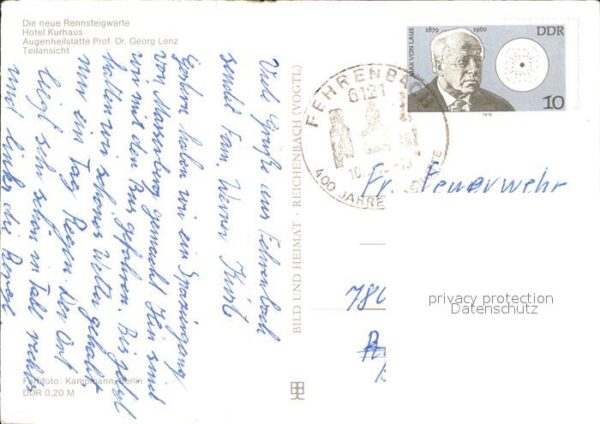 Die neue Rennsteigwarte
Hotel Kurhaus
Augenheilstätte Prof. Dr. Georg Lenz
Teilansicht
Viele Grüße aus Fehrenbach
sendet Fam. Werner
Gestern haben wir ein Spaziergang
von Masserberg gemacht. Hin sind
wir mit den Bus gefahren. Bis jetzt
hatten wir schönes Wetter gehabt
nur ein Tag Regen. Der Ort
liegt sehr schön im Tal rechts
und links die Berge.
Farbfoto: Kampmann, Berlin
DDR 0,20 M
BILD UND HEIMAT · REICHENBACH (VOGTL)
MAX VON LAUE
1879 1960
DDR
10
1979
FEHRENBACH
6121
400 JAHRE
Feuerwehr
privacy protection
Datenschutz